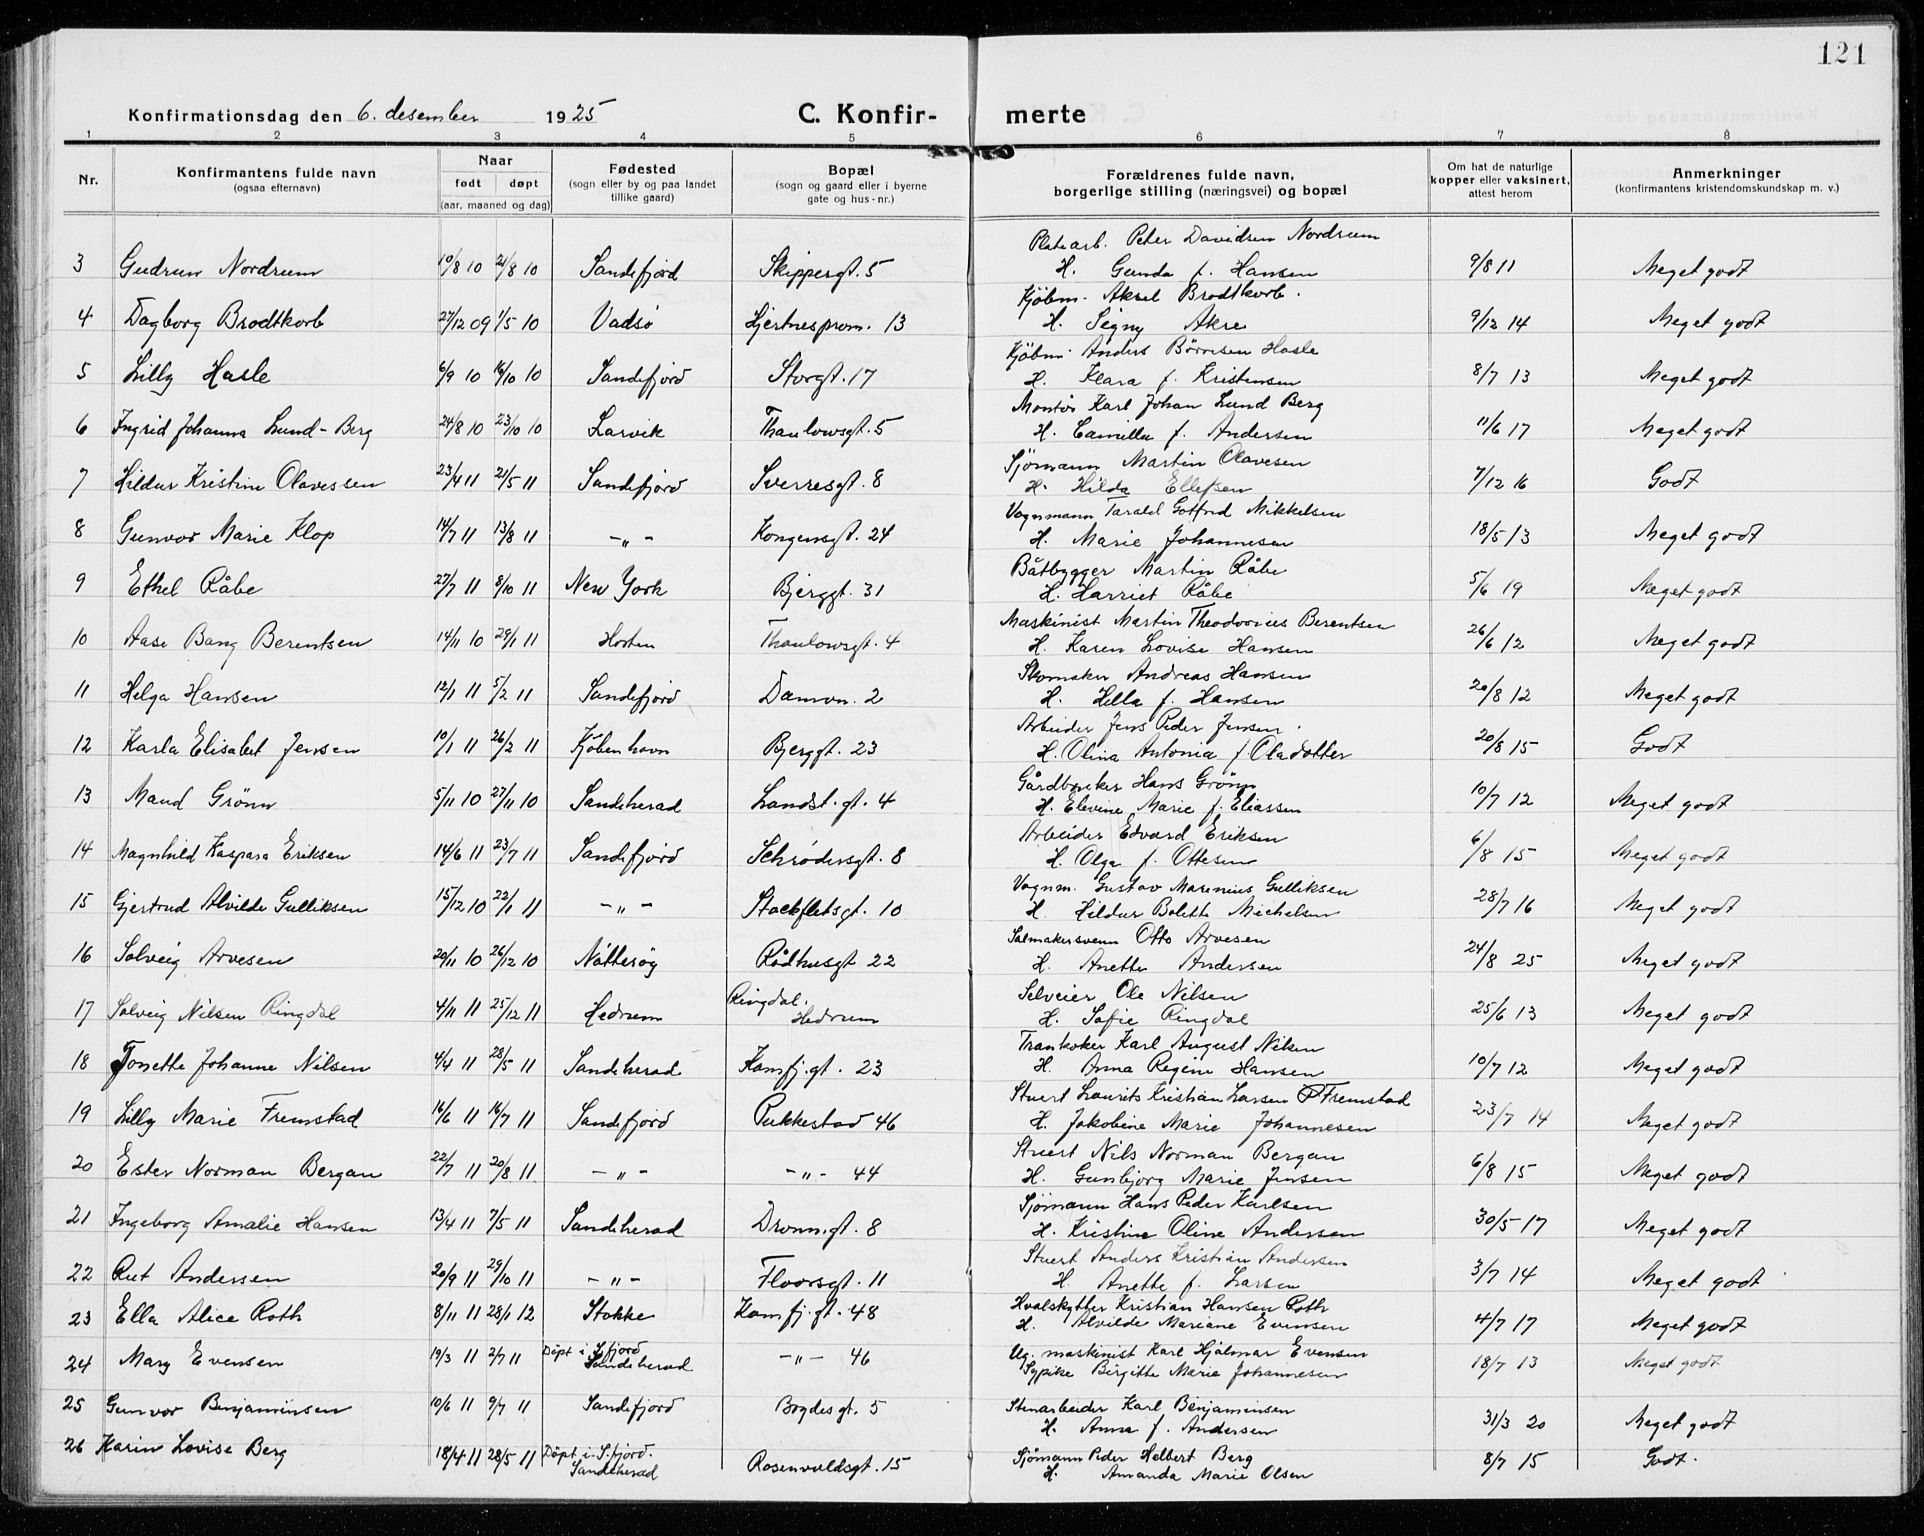 121
Konfirmationsdag den 6. desember 1925 C. Konfir- merte
1 2 3 4 5 6 7 8
Nr. Konfirmantens fulde navn (ogsaa efternavn) Naar født døpt (aar, maaned og dag) Fødested (sogn eller by og paa landet tillike gaard) Bopæl (sogn og gaard eller i byerne gate og hus-nr.) Forældrenes fulde navn, borgerlige stilling (næringsvei) og bopæl Om hat de naturlige kopper eller vaksinert, attest herom Anmerkninger (konfirmantens kristendomskundskap m. v.)
Platearb. Peter Davidsen Nordrum
3 Gudrun Nordrum 10/8 10 21/8 10 Sandefjord Skippergt. 5 H. Gunda f. Hansen 9/8 11 Meget godt
Kjøbm. Aksel Brodtkorb.
4 Dagborg Brodtkorb 27/12 09 1/5 10 Vadsø Hjertnesprom. 13 H. Signy Akre 9/12 14 Meget godt
Kjøbm. Anders Børresen Hasle
5 Lilly Hasle 6/9 10 16/10 10 Sandefjord Storgt. 17 H. Klara f. Kristensen 8/7 13 Meget godt
Montør Karl Johan Lund Berg
6 Ingrid Johanna Lund-Berg 24/8 10 23/10 10 Larvik Thaulowsgt. 5 H. Camilla f. Andersen 11/6 17 Meget godt
Sjømann Martin Olavesen
7 Hildur Kristine Olavessen 23/4 11 21/5 11 Sandefjord Sverresgt. 8 H. Hilda Ellefsen 7/12 16 Godt
Vognmann Tarald Gotfred Mikkelsen
8 Gunvor Marie Klop 14/7 11 13/8 11 -„- Kongensgt. 24 H. Marie Johannesen 18/5 13 Meget godt
Båtbygger Martin Råbe
9 Ethel Råbe 27/7 11 8/10 11 New York Bjerggt. 31 H. Harriet Råbe 5/6 19 Meget godt
Maskinist Martin Theodorius Berentsen
10 Aase Bang Berentsen 14/11 10 29/1 11 Horten Thaulowsgt. 4 H. Karen Lovise Hansen 26/6 12 Meget godt
Skomaker Andreas Hansen
11 Helga Hansen 12/1 11 5/2 11 Sandefjord Damvn. 2 H. Hella f. Hansen 20/8 12 Meget godt
Arbeider Jens Peder Jensen.
12 Karla Elisabet Jensen 10/1 11 26/2 11 Kjøbenhavn Bjerggt. 23 H. Olina Antonia f. Oladotter 20/8 15 Godt
Gårdbruker Hans Grönn
13 Maud Grönn 5/11 10 27/11 10 Sandeherad Landst. gt. 4 H. Elevine Marie f. Eliassen 10/7 12 Meget godt
Arbeider Edvard Eriksen
14 Magnhild Kaspara Eriksen 14/6 11 23/7 11 Sandefjord Schrødersgt. 8 H. Olga f. Ottesen 6/8 15 Meget godt
Vognm. Gustav Marinius Gulliksen
15 Gjertrud Alvilde Gulliksen 15/12 10 22/1 11 -„- Stockfletsgt. 10 H. Hildur Bolette Michelsen 28/7 16 Meget godt
Salmakersvenn Otto Arvesen
16 Solveig Arvesen 20/11 10 26/12 10 Nötteröy Rådhusgt 22 H. Anette Andersen 24/8 25 Meget godt
Ringdal. Selveier Ole Nilsen
17 Solveig Nilsen Ringdal 4/11 11 25/12 11 Hedrum Hedrum H. Sofie Ringdal 25/6 13 Meget godt
Trankoker Karl August Nilsen
18 Tonette Johanne Nilsen 4/4 11 28/5 11 Sandeherad Kamfj.gt. 23 H. Anna Regine Hansen 10/7 12 Meget godt
Stuert Laurits Kristian Larsen Fremstad
19 Lilly Marie Fremstad 16/6 11 16/7 11 Sandefjord Pukkestad 46 H. Jakobine Marie Johannesen 23/7 14 Meget godt
Stuert Nils Norman Bergan
20 Ester Norman Bergan 22/7 11 20/8 11 -„- -„- 44 H. Gunbjørg Marie Jensen 6/8 15 Meget godt
Sjømann Hans Peder Karlsen
21 Ingeborg Amalie Hansen 13/4 11 7/5 11 Sandeherad Dronn.gt. 8 H. Kristine Oline Andersen 30/5 17 Meget godt
Stuert Anders Kristian Andersen
22 Rut Andersen 20/9 11 29/10 11 -„- Floorsgt. 11 H. Anette f. Larsen 3/7 14 Meget godt
Hvalskytter Kristian Hansen Roth
23 Ella Alice Roth 8/11 11 28/1 12 Stokke Kamfj.gt. 48 H. Alvilde Mariane Evensen 4/7 17 Meget godt
Døpt i S.fjord Ug. maskinist Karl Hjalmar Evensen
24 Mary Evensen 19/3 11 2/7 11 Sandeherad -„- 46 Sypike Birgitte Marie Johannesen 18/7 13 Meget godt
Stenarbeider Karl Benjaminsen
25 Gunvor Benjaminsen 10/6 11 9/7 11 Sandefjord Bogdesgt. 5 H. Anna f. Andersen 31/3 20 Meget godt
Døpt i S.fjord. Sjømann Peder Helbert Berg
26 Karin Lovise Berg 18/4 11 28/5 11 Sandeherad Rosenvoldsgt. 15 H. Amanda Marie Olsen 8/7 15 Godt.